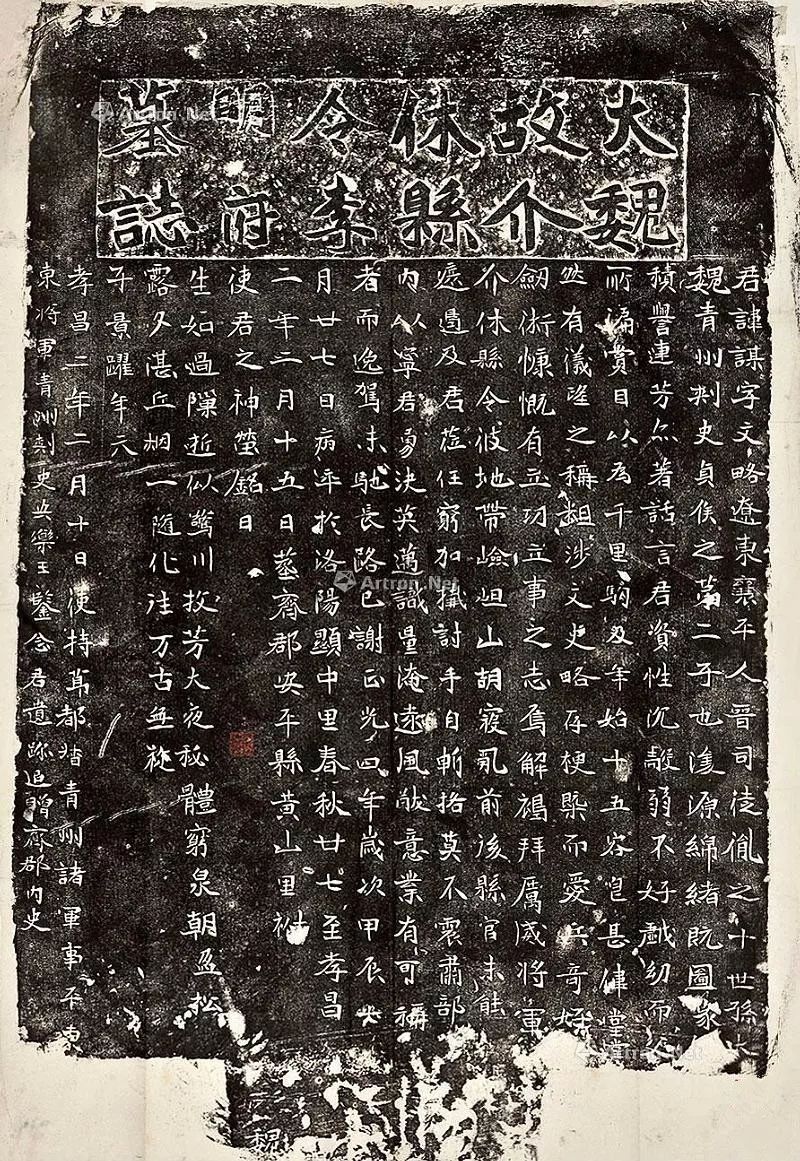 大魏
故介
休縣
令李
明府
墓誌
君諱謀字文略遼東襄平人晉司徒胤之十世孫大
魏青州刺史貞侯之第二子也濬源綿緒既圖篆
積譽連芳亦著話言君資性沉敏弱不好戲幼而
所誦賞目以為千里駒及年始十五容皃甚偉堂堂
然有儀望之稱粗涉文史略存梗槩而愛兵奇好
劒術慷慨有立功立事之志焉解褐拜厲威將軍
介休縣令彼地帶嶮岨山胡寇乱前後縣官未能
遏及君莅任窮加擒討手自斬掐莫不震肅部
內以寧君勇決英邁識量淹遠風猷意業有可稱
者而逸駕未馳長路已謝正光四年歲次甲辰
月廿七日病卒於洛陽顯中里春秋廿七至孝昌
二年二月十五日葬齊郡安平縣黃山里祔
使君之神塋銘曰
生如過隟逝似驚川披芳大夜秘體窮泉朝盈松
露夕湛丘烟一随化往万古無旋
子景躍年六
孝昌二年二月十日使持節都督青州諸軍事平東
東將軍青州刺史安樂王鑒念君遺跡追贈齊郡內史
魏
Artron.Net
Artron.Net
Artron.Net